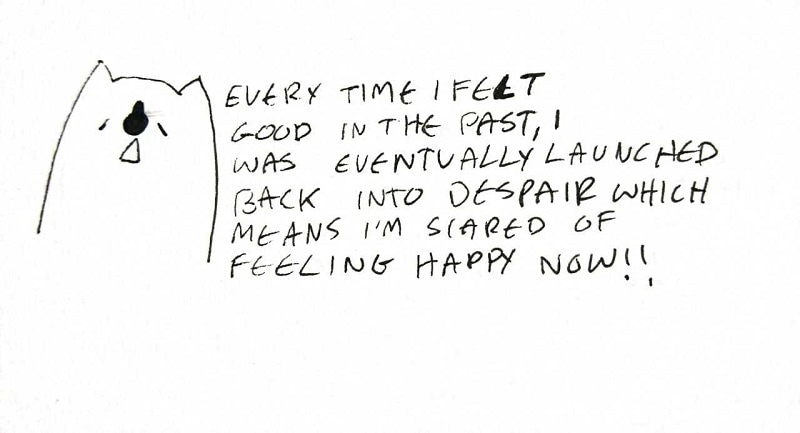 EVERY TIME I FELT
GOOD IN THE PAST, I
WAS EVENTUALLY LAUNCHED
BACK INTO DESPAIR WHICH
MEANS I'M SCARED OF
FEELING HAPPY NOW!!